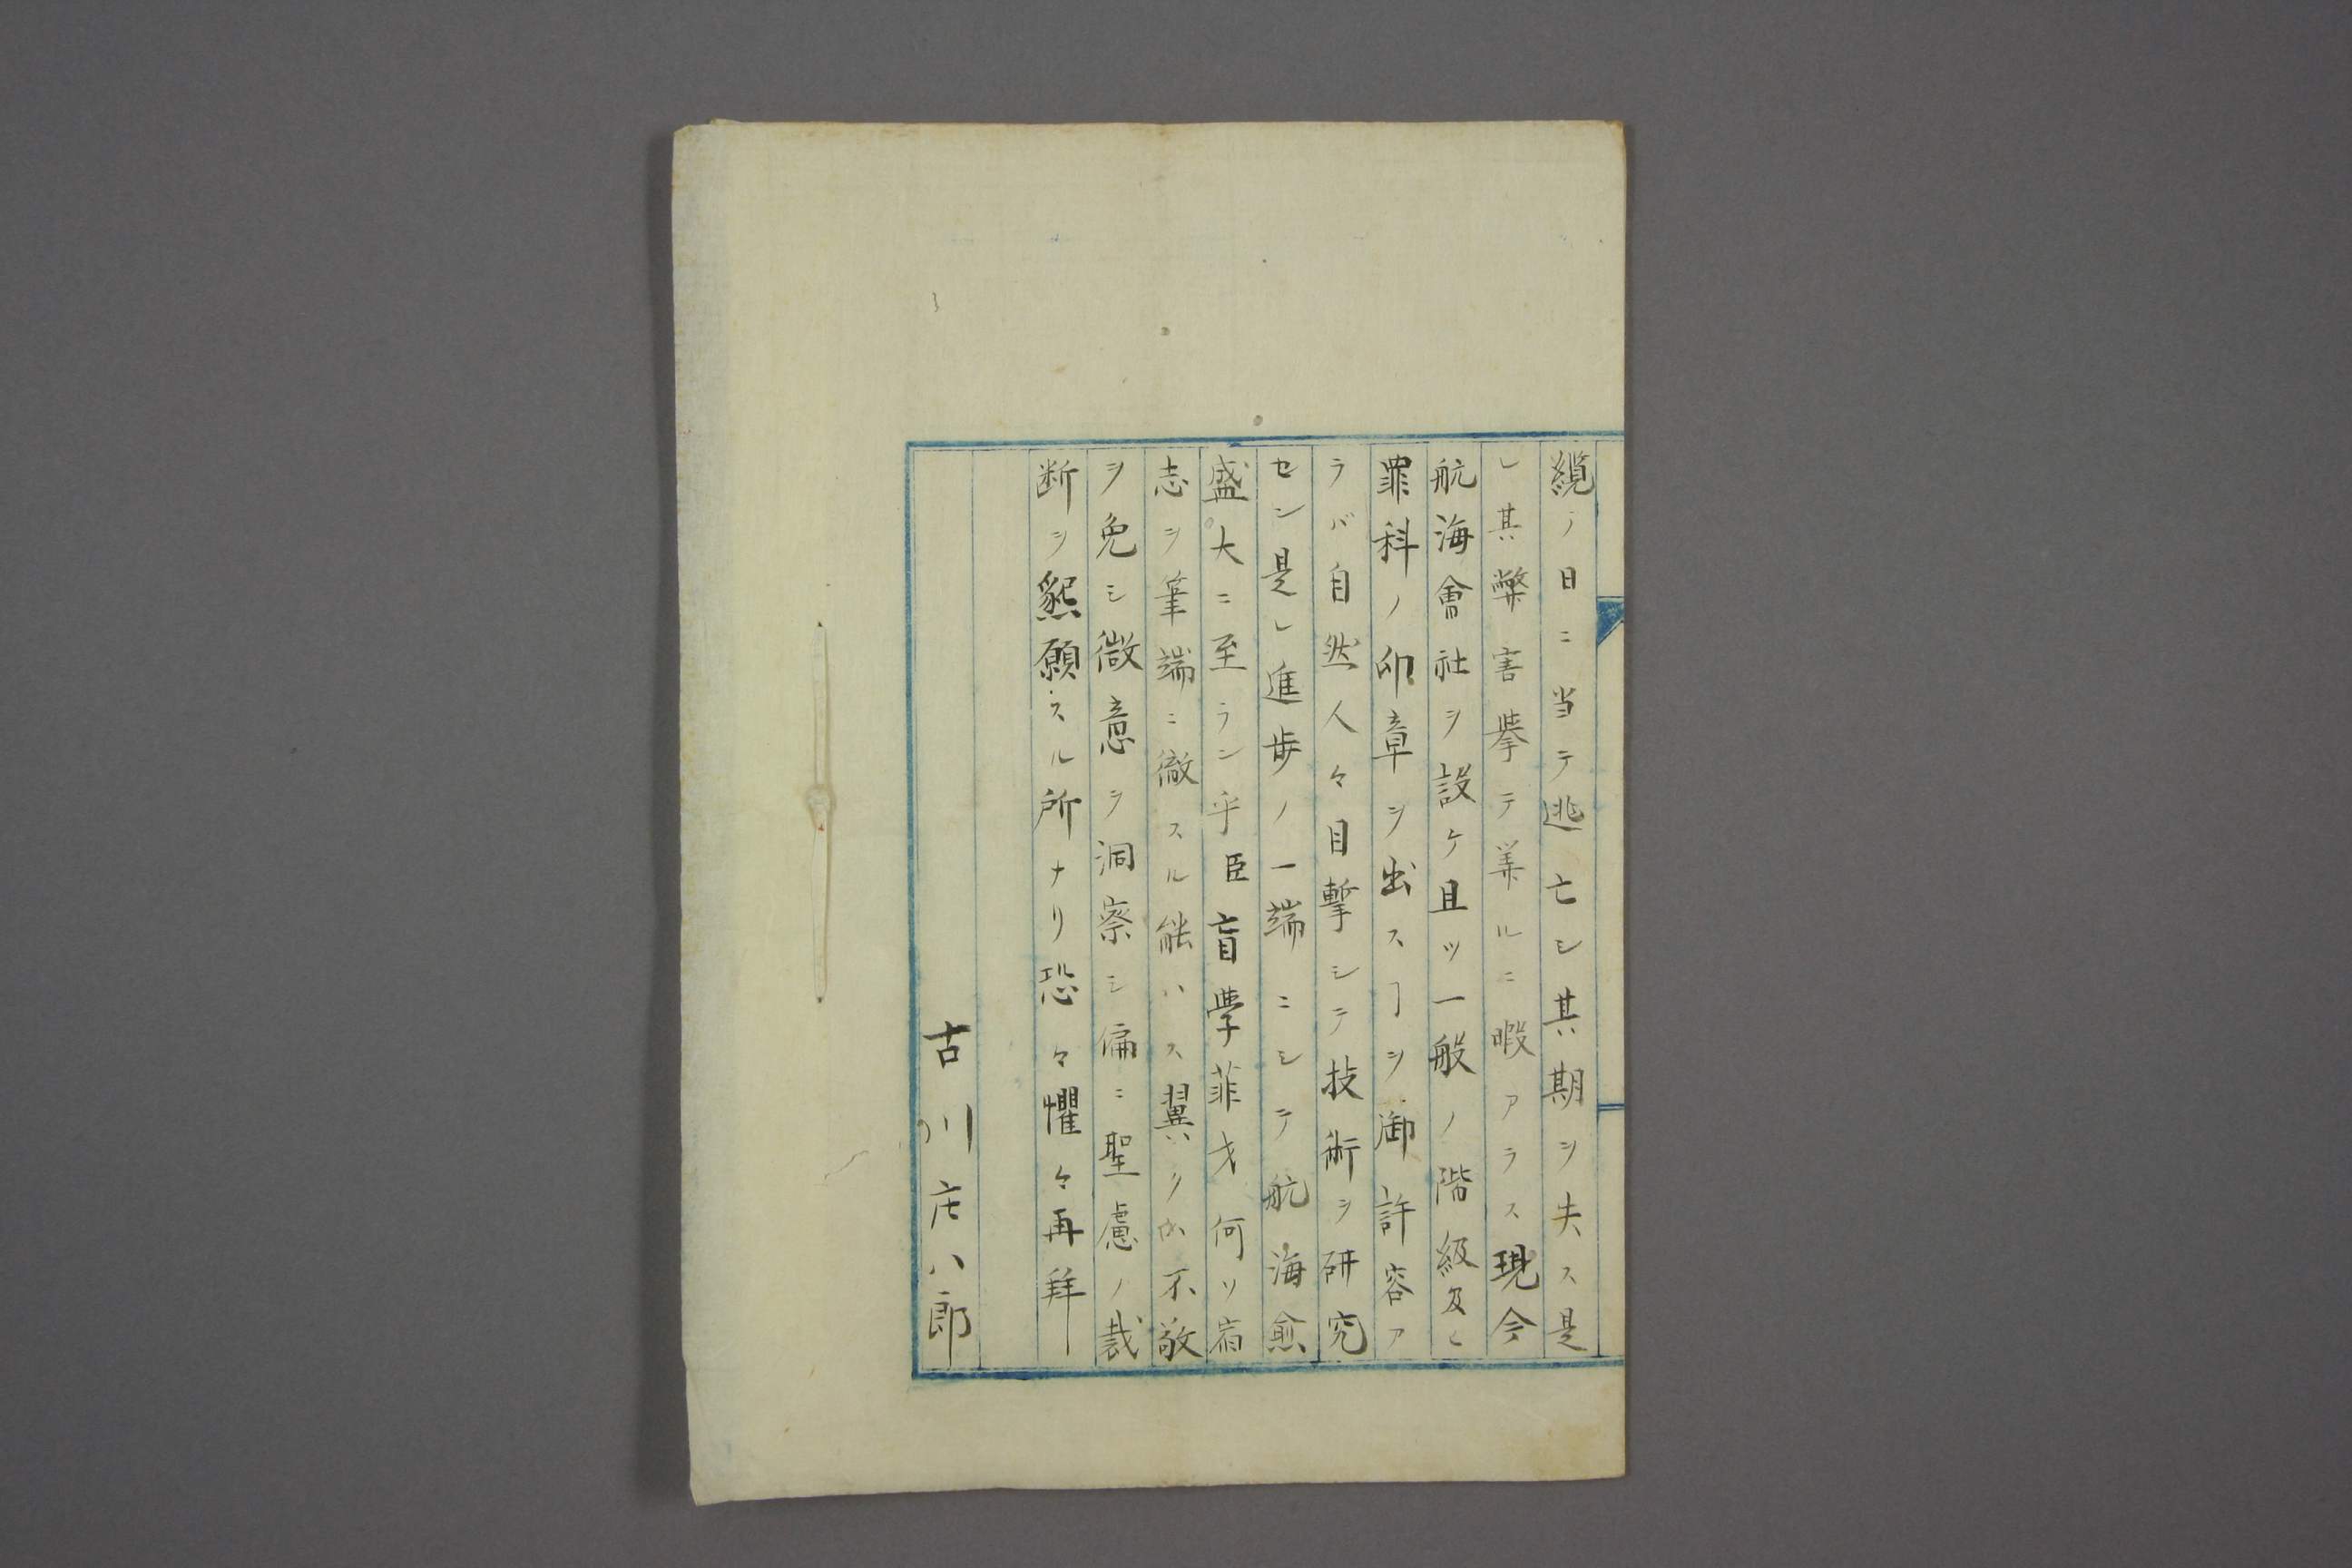 纜ノ日ニ当テ逃亡シ其期ヲ失ス是
レ其弊害挙テ算ルニ暇アラス現今
航海會社ヲ設ケ且ツ一般ノ階級及ヒ
罪科ノ印章ヲ出スヿヲ御許容ア
ラバ自然人々目撃シテ技術ヲ研究
セン是レ進歩ノ一端ニシテ航海愈
盛大ニ至ラン乎臣盲學菲才何ソ宿
志ヲ筆端ニ徹スル能ハス翼クハ不敬
ヲ免シ微意ヲ洞察シ偏ニ聖慮ノ裁
断ヲ懇願スル所ナリ恐々懼々再拜
古川庄八郎